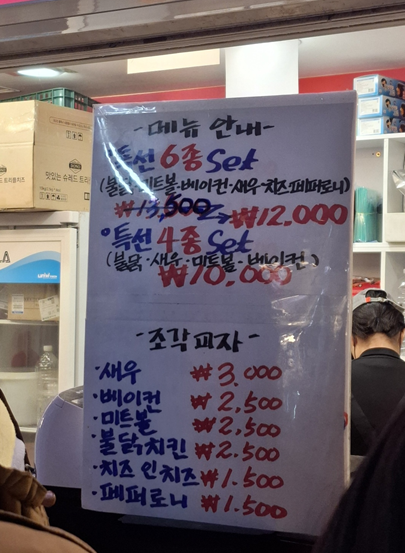 맛있는 슈레드
-메뉴 안내-
특선 6종 Set
(불닭·미트볼·베이컨·새우·치즈·페퍼로니)
₩13,500→₩12.000
특선 4종 Set
(불닭·새우·미트볼·베이컨)
₩10,000
-조각피자-
·새우 ₩3,000
·베이컨 ₩2,500
·미트볼 ₩2,500
·불닭치킨 ₩2.500
·치즈 인 치즈 ₩1.500
·페퍼로니 ₩1.500